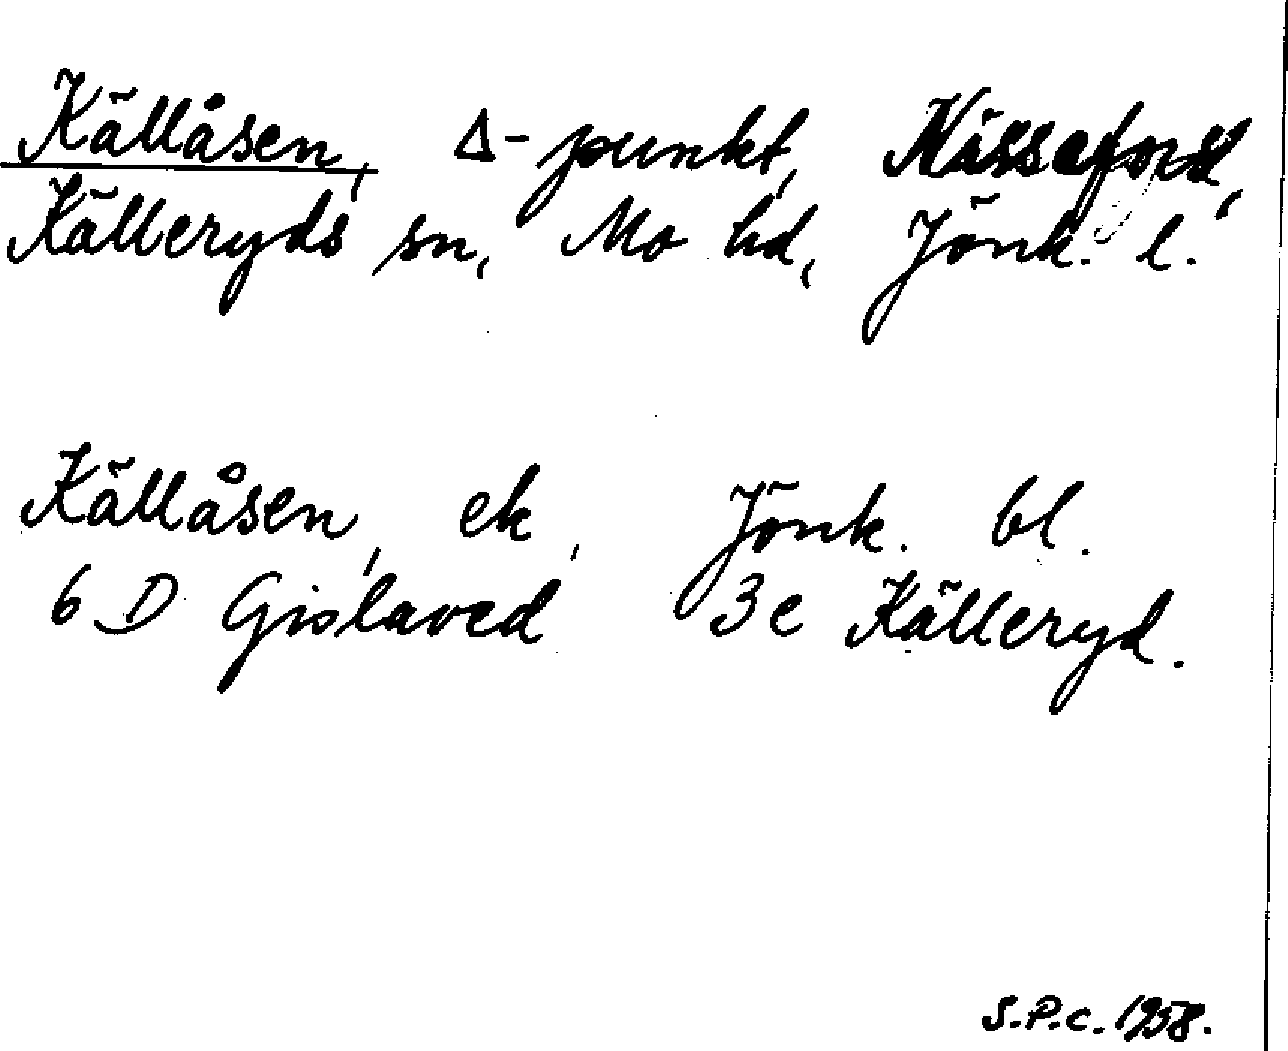 Källåsen, Δ-punkt,
Källeryds sn, Mo hd, Jönk. l.
Källåsen, ek, Jönk. bl.
6 D Gislaved 3e Källeryd.
S.P.c. 1958.